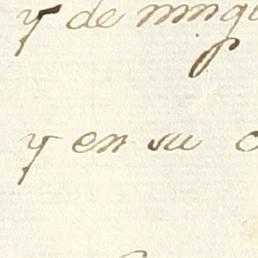 y de ning
y en su